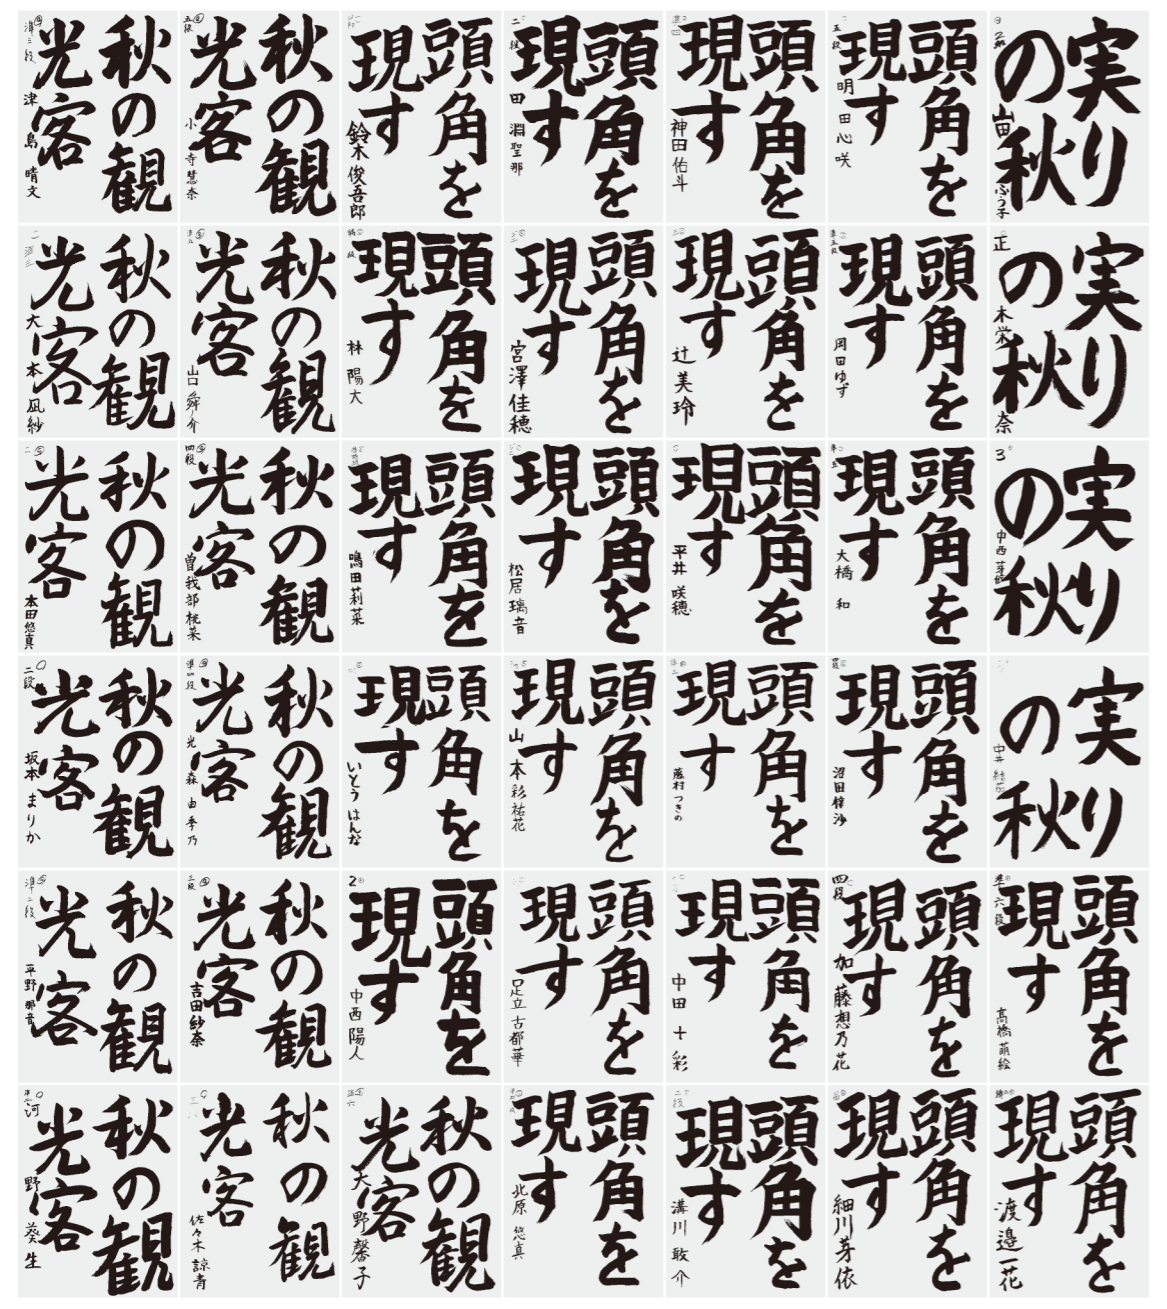 実り
の秋
2
山田
頭角を
現す
五段
明田心咲
頭角を
現す
神田佑斗
頭角を
現す
二段
田淵聖那
頭角を
現す
鈴木俊吾郎
秋の観
光客
五段
小寺慧奈
秋の観
光客
準三段
津島晴文
実り
の秋
正木栄奈
頭角を
現す
準五段
岡田ゆず
頭角を
現す
辻美玲
頭角を
現す
宮澤佳穂
頭角を
現す
林陽大
秋の観
光客
山口舜介
秋の観
光客
大本凪紗
実り
の秋
3
中西芽
頭角を
現す
準五
大橋和
頭角を
現す
平井咲穂
頭角を
現す
松居璃音
頭角を
現す
鳴田莉菜
秋の観
光客
四段
曽我部桃菜
秋の観
光客
二
本田悠真
実り
の秋
中井結
頭角を
現す
四段
沼田梓沙
頭角を
現す
藤村つきの
頭角を
現す
山本彩祐花
頭角を
現す
いとうはんな
秋の観
光客
準四段
光森由季乃
秋の観
光客
二段
坂本まりか
頭角を
現す
準六段
高橋萌絵
頭角を
現す
四段
加藤想乃花
頭角を
現す
中田十彩
頭角を
現す
足立古都華
頭角を
現す
2
中西陽人
秋の観
光客
三段
吉田紗奈
秋の観
光客
準二段
平野那音
頭角を
現す
渡邉一花
頭角を
現す
細川芽依
頭角を
現す
二段
溝川敢介
頭角を
現す
北原悠真
秋の観
光客
大野馨子
秋の観
光客
佐々木諒青
秋の観
光客
河野葵生